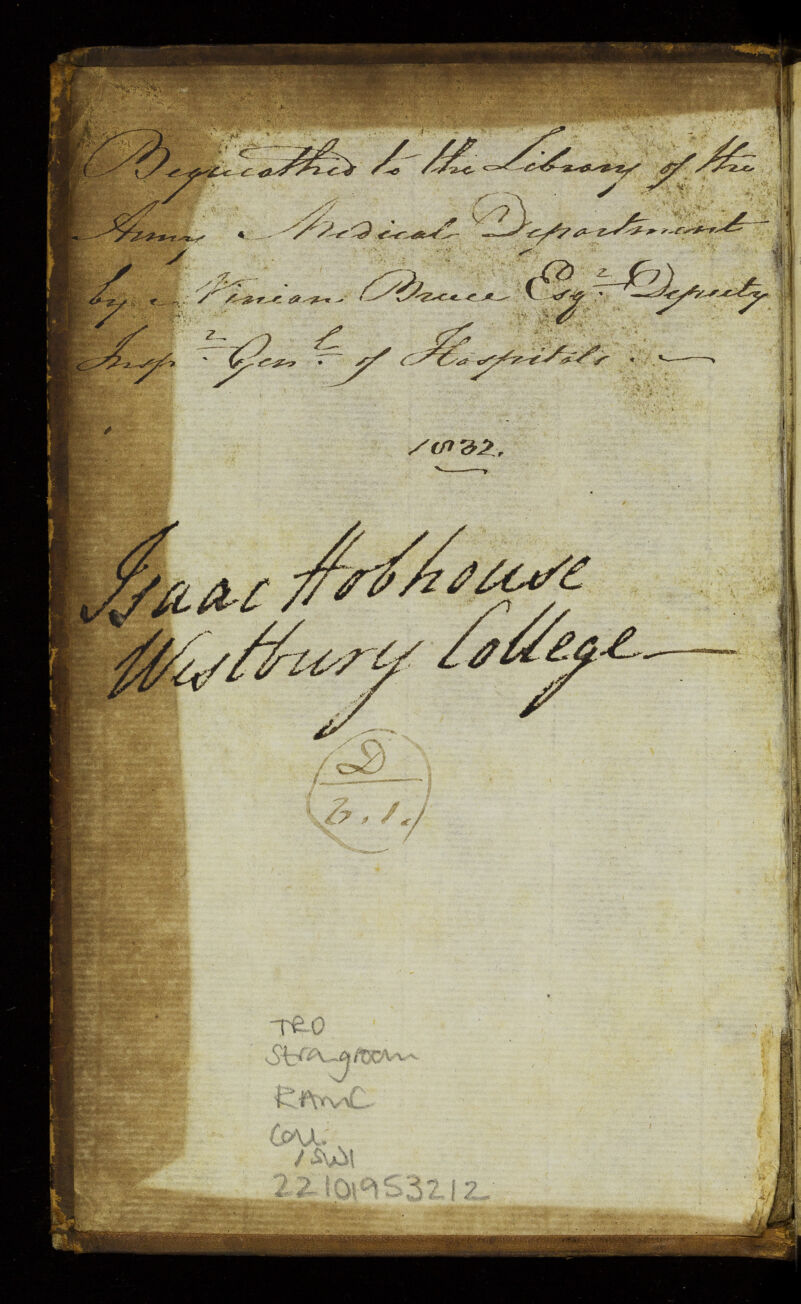 Bequeathed to the Library of the
Army Medical Department
by Ninian Bruce Esqr. Deputy
Inspr. Genl. of Hospitals. —
1832.
Isaac Hobhouse
Westbury College —
D
6.1.
TRO
Strongroom
RAMC
Coll.
22101953212